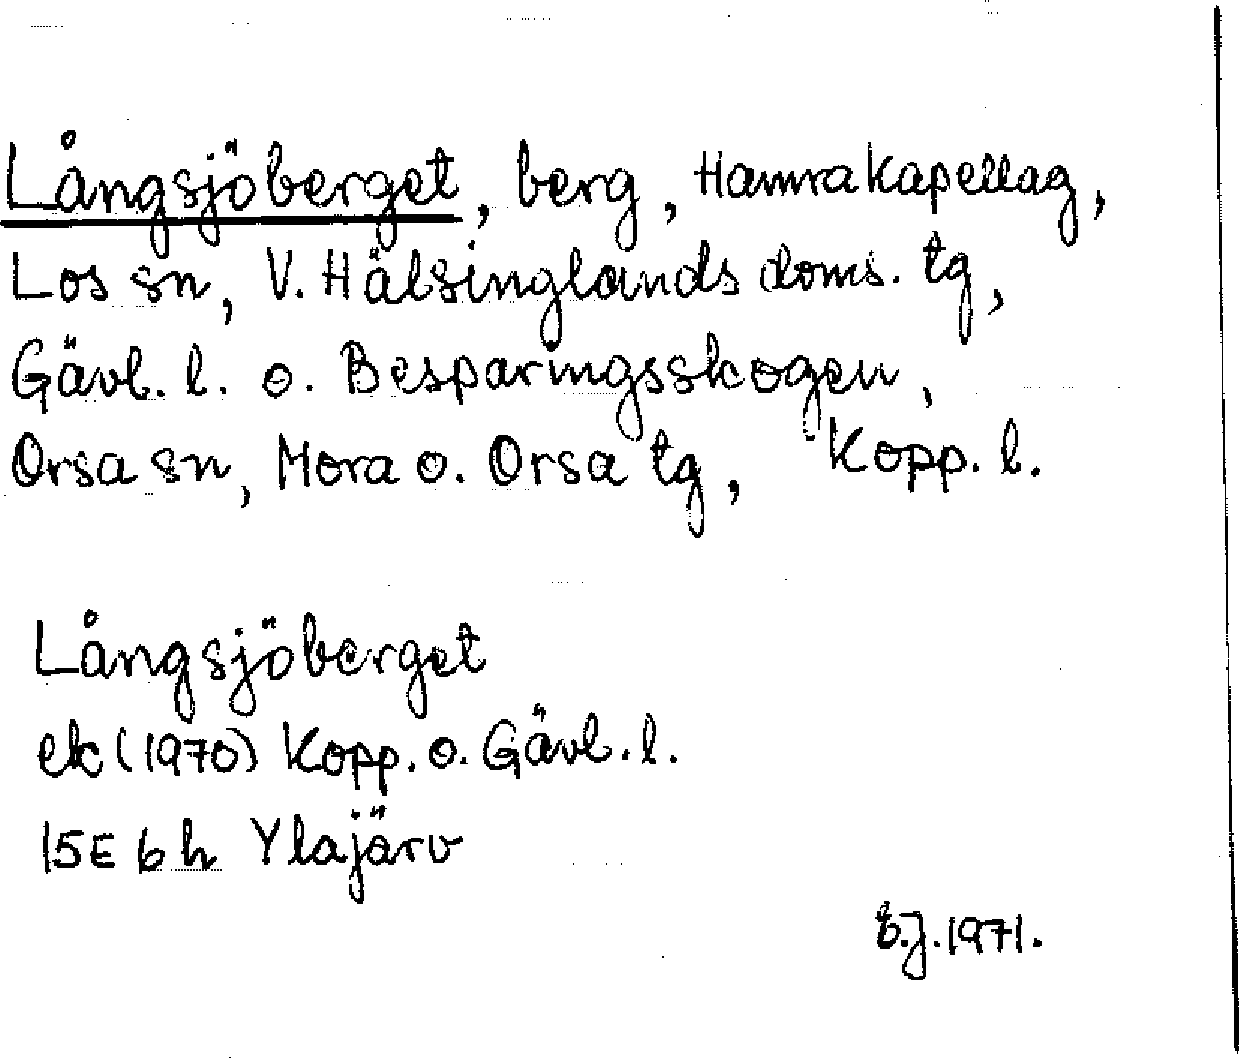 Långsjöberget, berg, Hamra kapellag,
Los sn, V. Hälsinglands doms. tg,
Gävl. l. o. Besparingsskogen,
Orsa sn, Mora o. Orsa tg, Kopp. l.
Långsjöberget
ek (1970) Kopp. o. Gävl. l.
15E 6h Ylajärv
B.J. 1971.